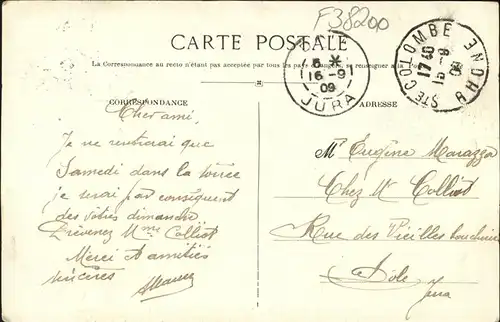 F38200
CARTE POSTALE
La Correspondance au recto n'était pas acceptée par tous les pays
se renseigner à la Poste
5 *
16-9
09
JURA
STE COLOMBE
17 40
15-9
09
RHONE
CORRESPONDANCE
ADRESSE
Cher ami,
Je ne rentrerai que
Samedi dans la soirée
je serai par conséquent
des vôtres dimanche
Prévenez Mme Colliot
Merci et amitiés
sincères
Mr Eugène Marazza
Chez Mr Colliot
Rue des Vieilles boucheries
Dole
Jura